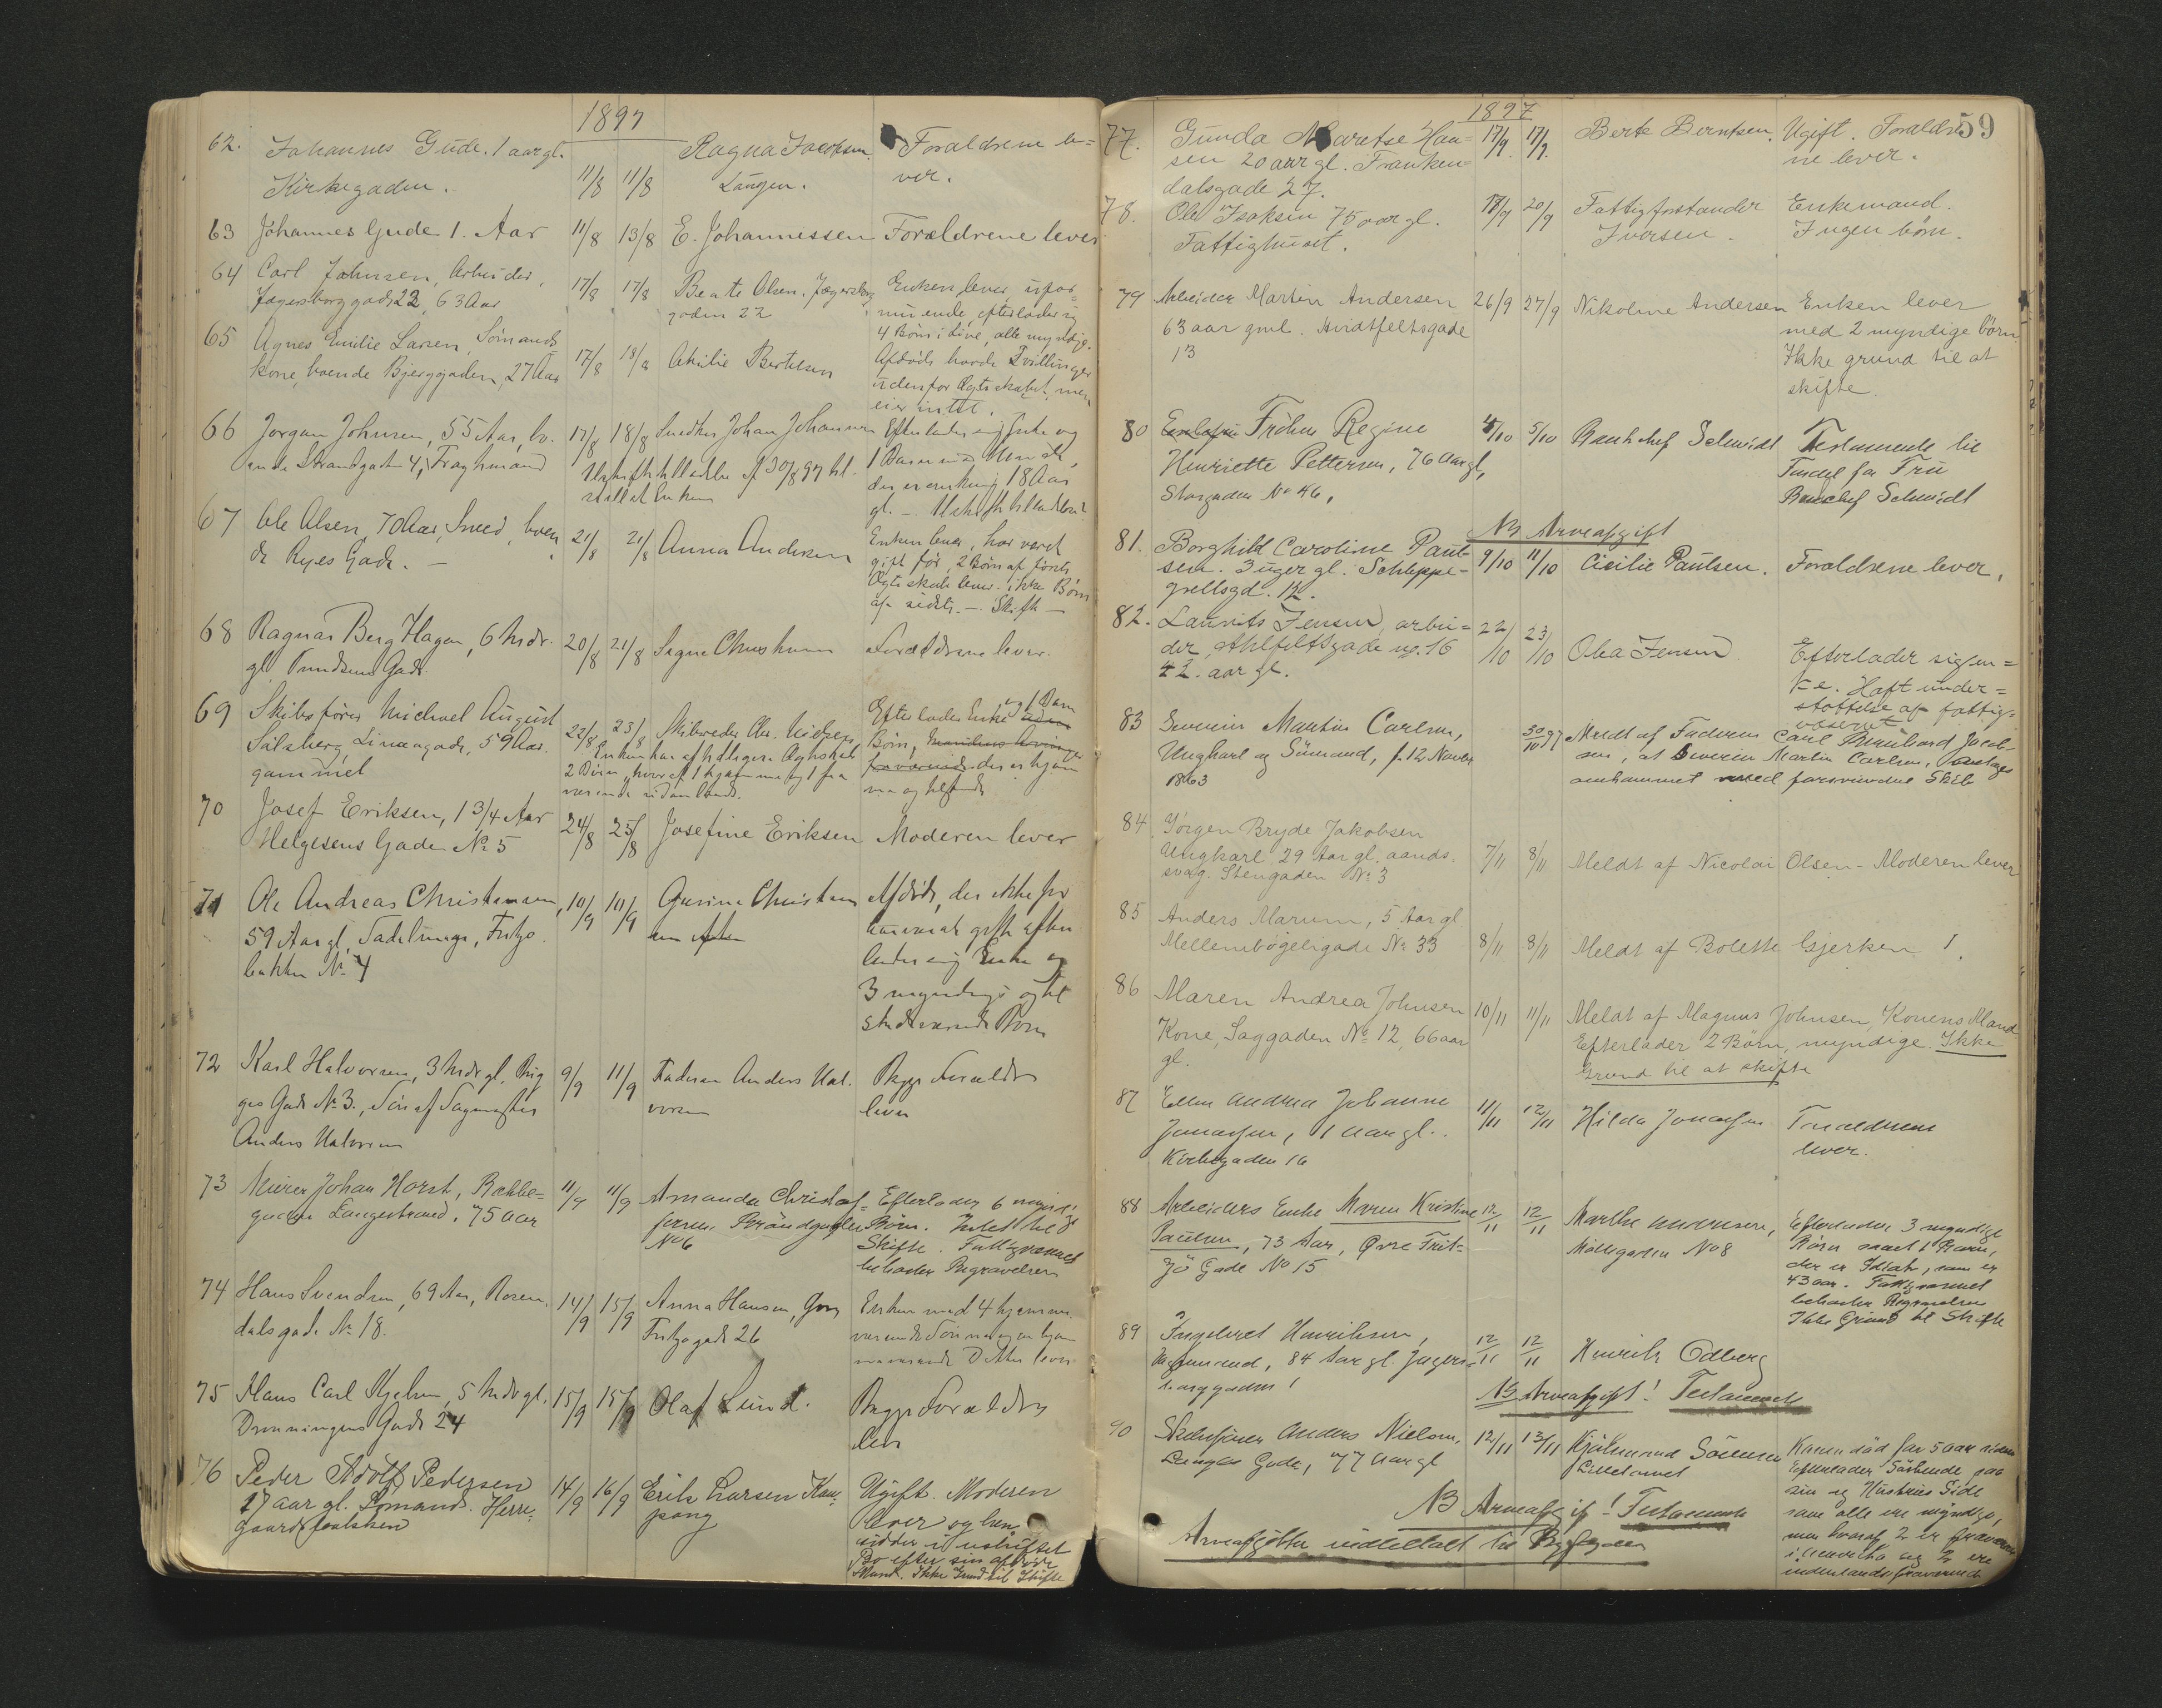 1897
62. Johannes Gude. 1 aar gl. Ragna Jacobsen. Forældrene le=
Kirkegaden. 11/8 11/8 Langen. ver.
63 Johannes Gude 1. Aar 11/8 13/8 E. Johannessen Forældrene lever
64 Carl Johnsen, Arbeider,
Jægersborggade 22, 63 Aar 17/8 17/8 Beate Olsen. Jægersborg
gaden 22
Enken lever, efterlader sig
4 Børn i Live, alle myndige.
65 Agnes Emilie Larsen, Sømands
kone, boende Bjerggaden, 27 Aar 17/8 18/8 Bertelsen
Afdøde havde Tvillinger
udenfor Ægteskabet, men
eier intet.
66 Jørgen Johnsen, 55 Aar, bo-
ende Strandgaden 4, 17/8 18/8 Snedker Johan Johansen
Efterlader sig Enke og
1 Barn
18 Aar
gl. –
67 Ole Olsen, 70 Aar, Smed, boen
de Ryes Gade. – 21/8 21/8 Anna Andersen
Enken lever, har været
gift før, 2 Børn af første
Ægteskab lever, ikke Børn
af sidste. – Skifte –
68 Ragnar Berg Hagen, 6 Mdr. 20/8 21/8 Signe Forældrene lever.
gl. Gade.
69 Skibsfører Michael August
Salsberg, Linaagade, 59 Aar
gammel 22/8 23/8 Skibsreder Chr. Nielsen
Efterlader Enke og 1 Barn
2 Børn, hvoraf 1 hjemme og 1 fra
værende udenlands.
70 Josef Eriksen, 1 3/4 Aar 24/8 25/8 Josefine Eriksen Moderen lever
Helgesens Gade No 5
71 Ole Andreas Christensen, 10/9 10/9 Gurine Christen
59 Aar gl, Sadelmager, Fritzø
bakken No 4
Afdøde, der ikke før
har været gift efter-
lader sig Enke og
3 myndige og tilstedeværende Børn
72 Karl Halvorsen, 3 Mdr gl, Brig 9/9 11/9 Faderen Anders Hal- Begge Forældre
ges Gade No 3., Søn af Sagmester vorsen lever
Anders Halvorsen
73 Murer Johan Horst, Bakke= 11/9 11/9 Amanda Christof= Efterlader 6 myndige
gaden Langestrand. 75 Aar fersen Brøndgaden Børn. Intet til
No 6 Skifte. Fattigvæsenet
bekoster Begravelsen
74 Hans Svendsen, 69 Aar, Rosen- 14/9 15/9 Anna Hansen, Enken med 4 hjemme-
dals gade No 18. Fritzøgade 26 værende Sønner og en hjem
meværende Datter lever
75 Hans Carl 5 Mdr gl. 15/9 15/9 Olaf Lund. Begge Forældre
Dronningens Gade 24 lever
76 Peder Adolf Pedersen 14/9 16/9 Erik Larsen Kau- Ugift. Moderen
27 aar gl. Sømand. Herre- pang lever og hen
gaardsbakken sidder i uskiftet
Bo efter sin afdøde
Mand. Ikke Grund til Skifte
1897
59
77. Gunda Maretse Han= 17/9 17/9 Berte Berntsen. Ugift. Forældre
sen 20 aar gl. Franken= ne lever.
dalsgade 27.
78. Ole Isaksen 75 aar gl. 17/9 20/9 Fattigforstander Enkemand.
Fattighuset. Iversen. Ingen børn.
79 Arbeider Martin Andersen 26/9 27/9 Nikoline Andersen Enken lever
63 aar gml. Hvidtfeltsgade med 2 myndige børn
13 Ikke grund til at
skifte.
80 Frøken Regine 4/10 5/10 Bankchef Schmidt Testamente til
Henriette Pettersen, 76 Aar gl, Fordel for Fru
Storgaden No 46, Bankchef Schmidt
NB Arveafgift
81. Borghild Caroline Paul- 9/10 11/10 Cicilie Paulsen. Forældrene lever,
sen. 3 uger gl. Schleppe-
grellsgd. 12.
82. Laurits Jensen, arbei= 22/10 23/10 Olea Jensen Efterlader sig en=
der, Ahlfeltsgade no. 16 ke. Haft under=
42. aar gl. støttelse af fattig-
væsenet
83 Severin Martin Carlsen, 30/10 97 Meldt af Faderen Carl Bernhard Jacob-
Ungkarl og Sømand, f. 12 Novbr sen, at Severin Martin Carlsen, antages
1863 omkommet med forsvundne Skib
84 Jørgen Bryde Jakobsen
Ungkarl 29 Aar gl. aands- 7/11 8/11 Meldt af Nicolai Olsen – Moderen lever
svag. Stengaden No 3
85 Anders Marum, 5 Aar gl
Mellembøgeligade No 33 8/11 8/11 Meldt af Bolette Gjerken
86 Maren Andrea Johnsen 10/11 11/11 Meldt af Magnus Johnsen, Konens Mand
Kone, Saggaden No 12, 66 aar Efterlader 2 Børn, myndige. Ikke
gl. Grund til at skifte
87 Ellen Andrea Johanne 11/11 12/11 Hilda Jonassen Forældrene
Jonassen, 1 Aar gl. lever.
Kirkegaden 16
88 Arbeiders Enke Maren Kristine 12/11 12/11 Marthe Efterlader 3 myndige
Paulsen, 73 Aar, Øvre Frit= Møllegaden No 8 Børn samt 1 Barn,
zø Gade No 15 der er Idiot, som er
43 aar. Fattigvæsenet
bekoster Begravelsen
Ikke Grund til Skifte
89 Ingebret Henriksen, 12/11 12/11 Henrik Odberg
84 Aar gl. Jægers-
borggaden 1
NB Arveafgift! Testamente
90 Skibsfører Anders Nielsen, 12/11 13/11 Hjalmand Sörensen Konen död for 5 aar siden
Langes Gade, 77 Aar gl Lilletorvet Efterlader Sødskende paa
sin og Hustrues Side
som alle ere myndige,
men hvoraf 2 er fraværende
i Amerika og 2 ere
indenlands fraværende
NB Arveafgift! Testamente